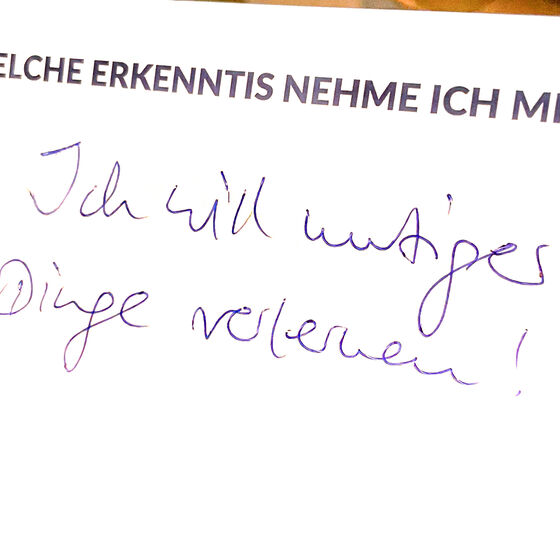 ELCHE ERKENNTIS NEHME ICH MI
Ich will mutiger
Dinge verlernen!